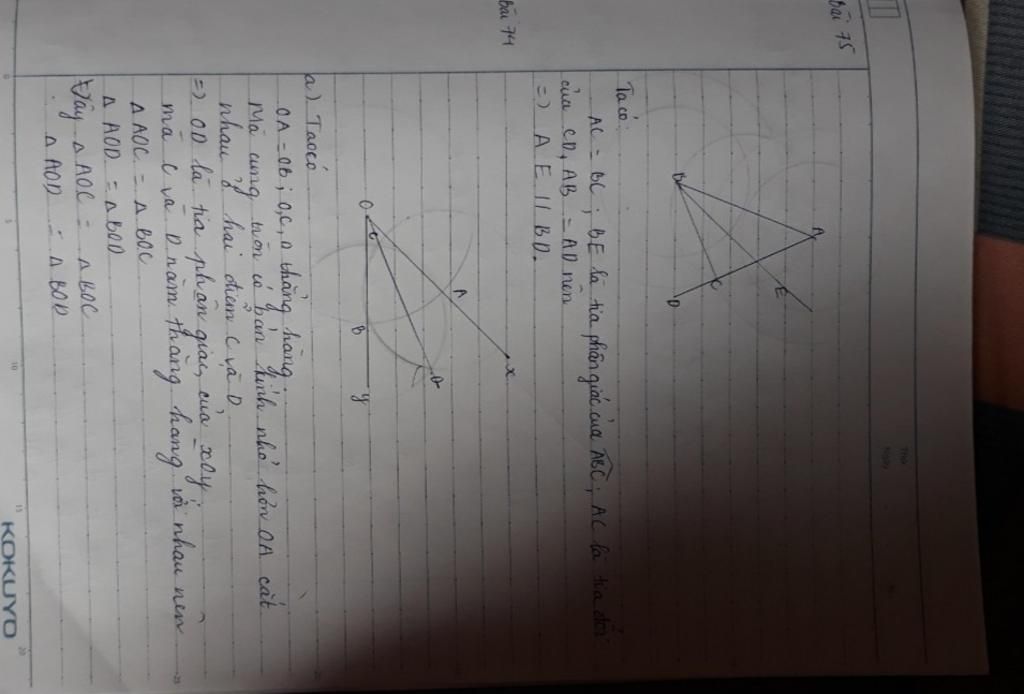 bài 75
Thứ
Ngày
A
B
E
C
D
Ta có:
AC = BC ; BE là tia phân giác của ABC ; AC là tia đối
của CD, AB = AD nên
=) AE // BD.
bài 74
x
A
D
O
C
B
y
a) Ta có
OA = OB ; O, C, D thẳng hàng.
Mà cung tròn có bán kính nhỏ hơn OA cắt
nhau ở hai điểm C và D
=) OD là tia phân giác của xOy
mà C và D nằm thẳng hàng với nhau nên
△ AOC = △ BOC
△ AOD = △ BOD
Vậy △ AOC = △ BOC
△ AOD = △ BOD
0
5
10
15
20
KOKUYO